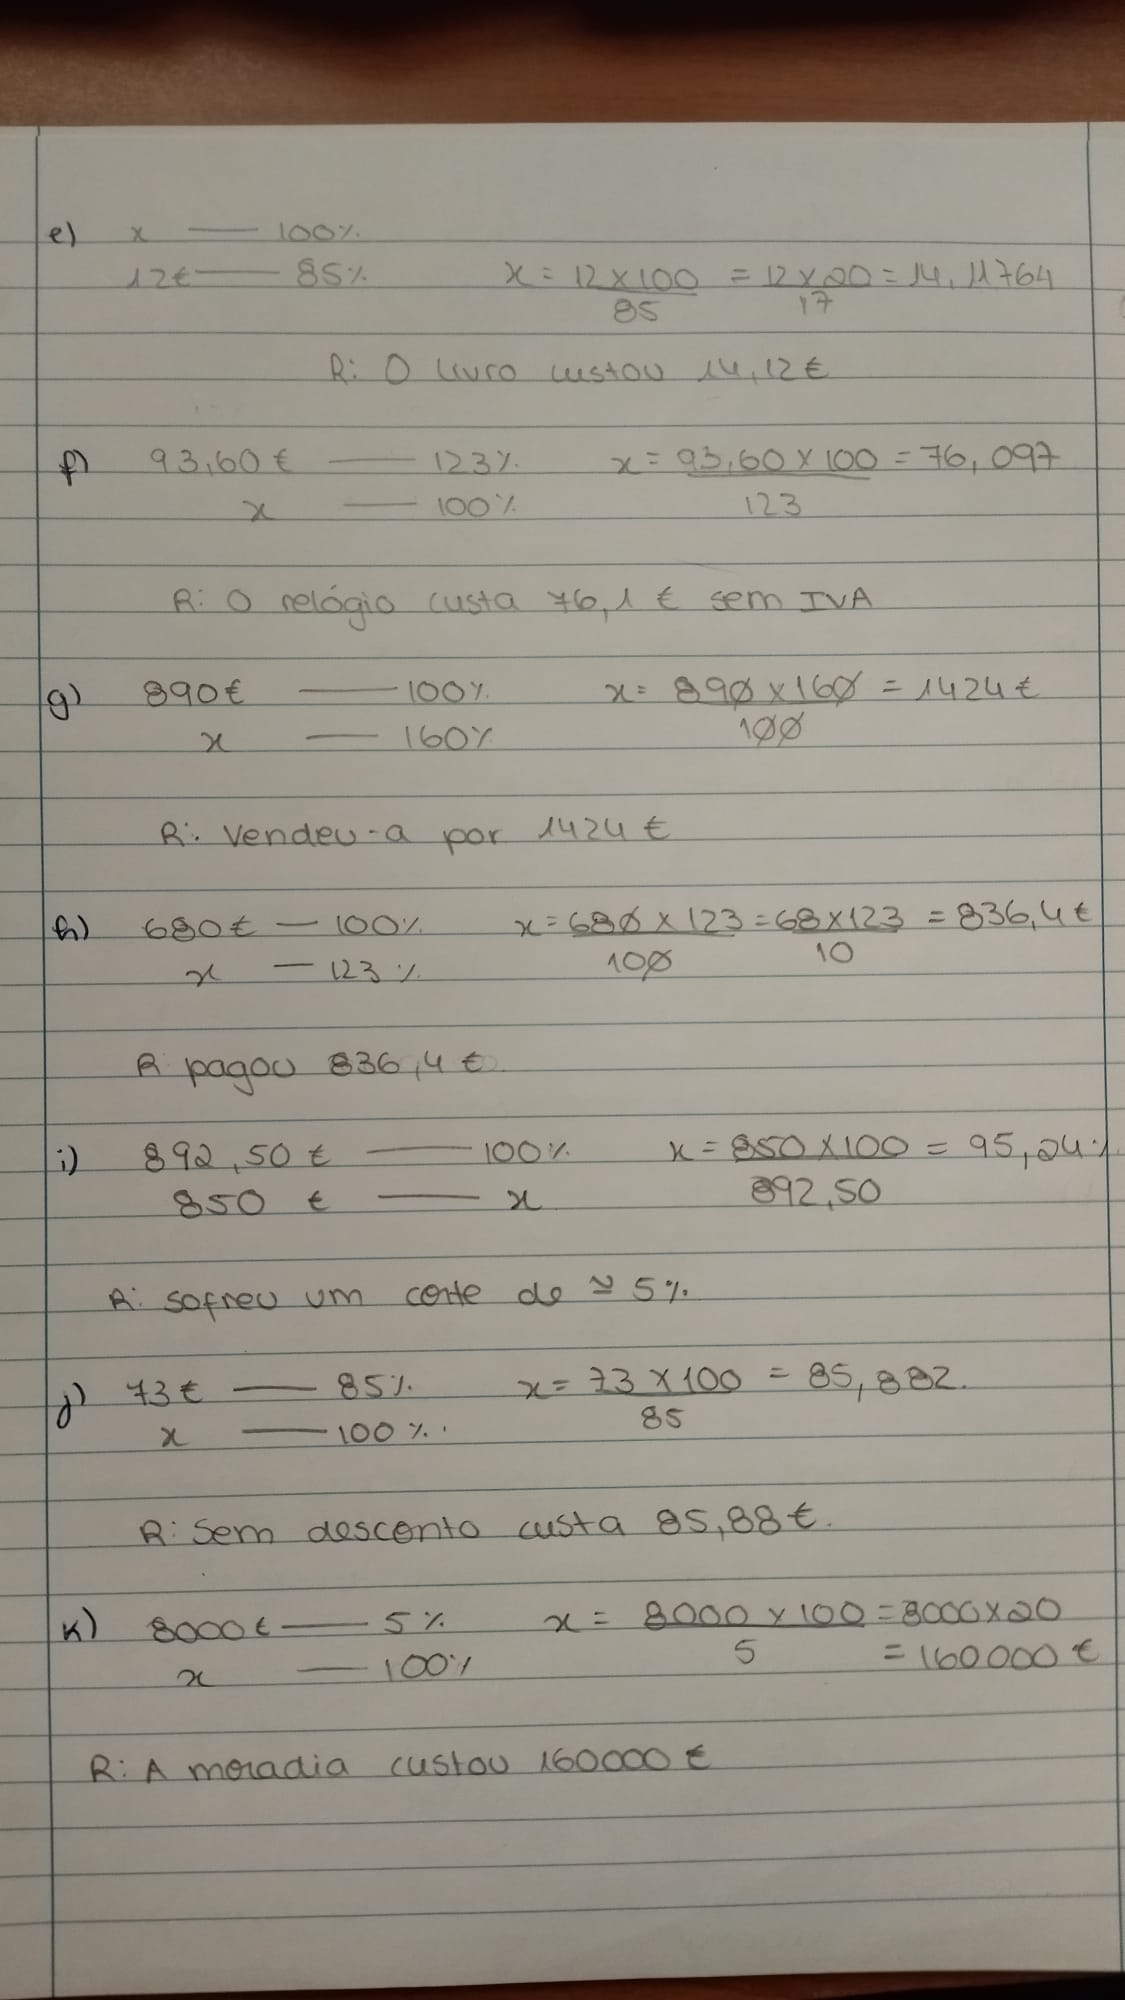 e) x — 100%
12€ — 85% x = 12 x 100 / 85 = 12 x 20 / 17 = 14,11764
R: O livro custou 14,12€
f) 93,60€ — 123% x = 93,60 x 100 / 123 = 76,097
x — 100%
R: O relógio custa 76,1 € sem IVA
g) 890€ — 100% x = 890 x 160 / 100 = 1424€
x — 160%
R: Vendeu-a por 1424€
h) 680€ — 100% x = 680 x 123 / 100 = 68 x 123 / 10 = 836,4€
x — 123%
R pagou 836,4€
i) 892,50€ — 100% x = 850 x 100 / 892,50 = 95,24%
850 € — x
R: sofreu um corte de ≃ 5%
j) 73€ — 85% x = 73 x 100 / 85 = 85,882.
x — 100%.
R: Sem desconto custa 85,88€.
k) 8000€ — 5% x = 8000 x 100 / 5 = 8000 x 20
x — 100% = 160000€
R: A moradia custou 160000€